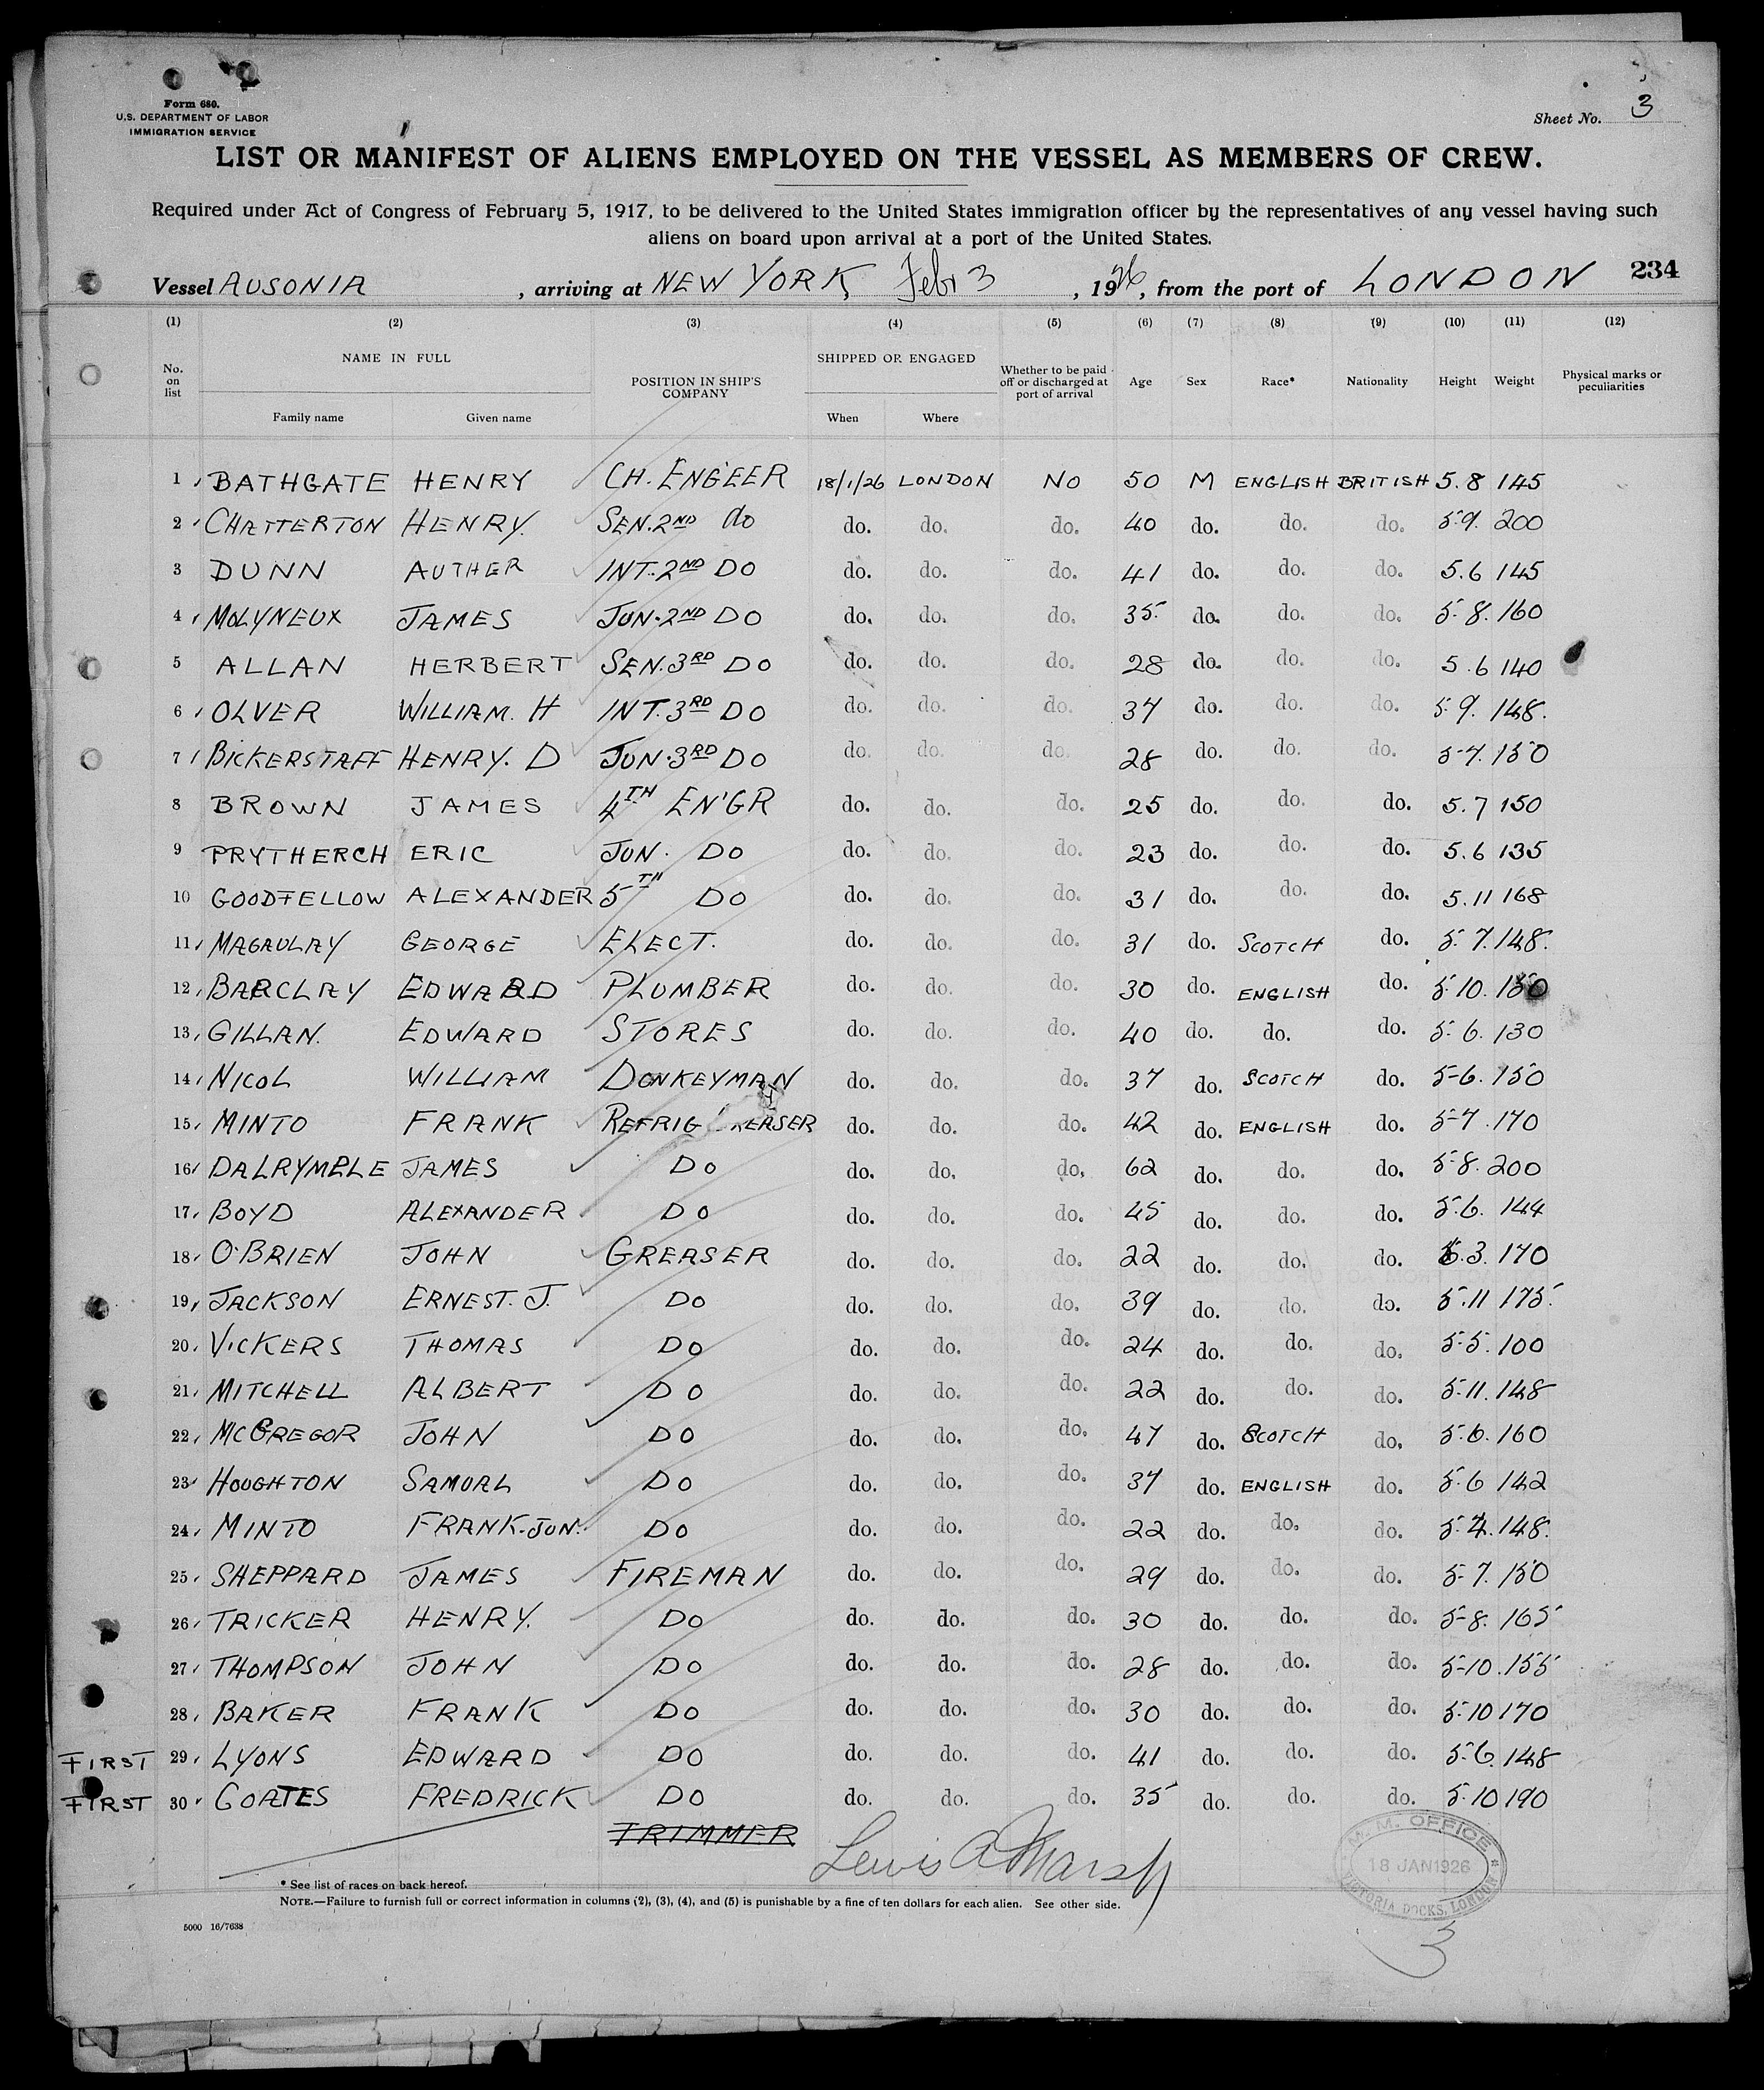 Form 680.
U.S. DEPARTMENT OF LABOR
IMMIGRATION SERVICE
Sheet No. 3
LIST OR MANIFEST OF ALIENS EMPLOYED ON THE VESSEL AS MEMBERS OF CREW.
Required under Act of Congress of February 5, 1917, to be delivered to the United States immigration officer by the representatives of any vessel having such
aliens on board upon arrival at a port of the United States.
234
Vessel AUSONIA, arriving at NEW YORK, Febr 3, 1926, from the port of LONDON
(1) (2) (3) (4) (5) (6) (7) (8) (9) (10) (11) (12)
No. on list NAME IN FULL Family name Given name POSITION IN SHIP'S COMPANY SHIPPED OR ENGAGED When Where Whether to be paid off or discharged at port of arrival Age Sex Race* Nationality Height Weight Physical marks or peculiarities
1 BATHGATE HENRY CH. ENG'EER 18/1/26 LONDON NO 50 M ENGLISH BRITISH 5.8 145
2 CHATTERTON HENRY. SEN. 2ND do do. do. do. 40 do. do. do. 5-9. 200
3 DUNN AUTHER INT. 2ND DO do. do. do. 41 do. do. do. 5.6 145
4 MOLYNEUX JAMES JUN. 2ND DO do. do. do. 35 do. do. do. 5-8. 160
5 ALLAN HERBERT SEN. 3RD DO do. do. do. 28 do. do. do. 5.6 140
6 OLVER WILLIAM. H INT. 3RD DO do. do. do. 37 do. do. do. 5-9. 148.
7 BICKERSTAFF HENRY. D JUN. 3RD DO do. do. do. 28 do. do. do. 5-7. 150
8 BROWN JAMES 4TH EN'GR do. do. do. 25 do. do. do. 5.7 150
9 PRYTHERCH ERIC JUN. DO do. do. do. 23 do. do. do. 5.6 135
10 GOODFELLOW ALEXANDER 5TH DO do. do. do. 31 do. do. do. 5.11 168
11 MAGAULAY GEORGE ELECT. do. do. do. 31 do. SCOTCH do. 5-7. 148.
12 BARCLAY EDWARD PLUMBER do. do. do. 30 do. ENGLISH do. 5-10. 150
13 GILLAN. EDWARD STORES do. do. do. 40 do. do. do. 5-6. 130
14 NICOL WILLIAM DONKEYMAN do. do. do. 37 do. SCOTCH do. 5-6. 150
15 MINTO FRANK REFRIG GREASER do. do. do. 42 do. ENGLISH do. 5-7. 170
16 DALRYMPLE JAMES DO do. do. do. 62 do. do. do. 5-8. 200
17 BOYD ALEXANDER DO do. do. do. 45 do. do. do. 5-6. 144
18 O'BRIEN JOHN GREASER do. do. do. 22 do. do. do. 6.3. 170
19 JACKSON ERNEST. J. DO do. do. do. 39 do. do. do. 5.11 175.
20 VICKERS THOMAS DO do. do. do. 24 do. do. do. 5-5. 100
21 MITCHELL ALBERT DO do. do. do. 22 do. do. do. 5-11. 148
22 MCGREGOR JOHN DO do. do. do. 47 do. SCOTCH do. 5-6. 160
23 HOUGHTON SAMUAL DO do. do. do. 37 do. ENGLISH do. 5-6 142
24 MINTO FRANK. JUN. DO do. do. do. 22 do. do. do. 5-4. 148.
25 SHEPPARD JAMES FIREMAN do. do. do. 29 do. do. do. 5-7. 150
26 TRICKER HENRY. DO do. do. do. 30 do. do. do. 5-8. 165
27 THOMPSON JOHN DO do. do. do. 28 do. do. do. 5-10. 155
28 BAKER FRANK DO do. do. do. 30 do. do. do. 5-10 170
FIRST 29 LYONS EDWARD DO do. do. do. 41 do. do. do. 5-6. 148
FIRST 30 COATES FREDRICK DO do. do. do. 35 do. do. do. 5-10 190
TRIMMER
Lewis A Marsh
M.M. OFFICE
18 JAN 1926
VICTORIA DOCKS, LONDON
* See list of races on back hereof.
NOTE.—Failure to furnish full or correct information in columns (2), (3), (4), and (5) is punishable by a fine of ten dollars for each alien. See other side.
5000 16/7638
3